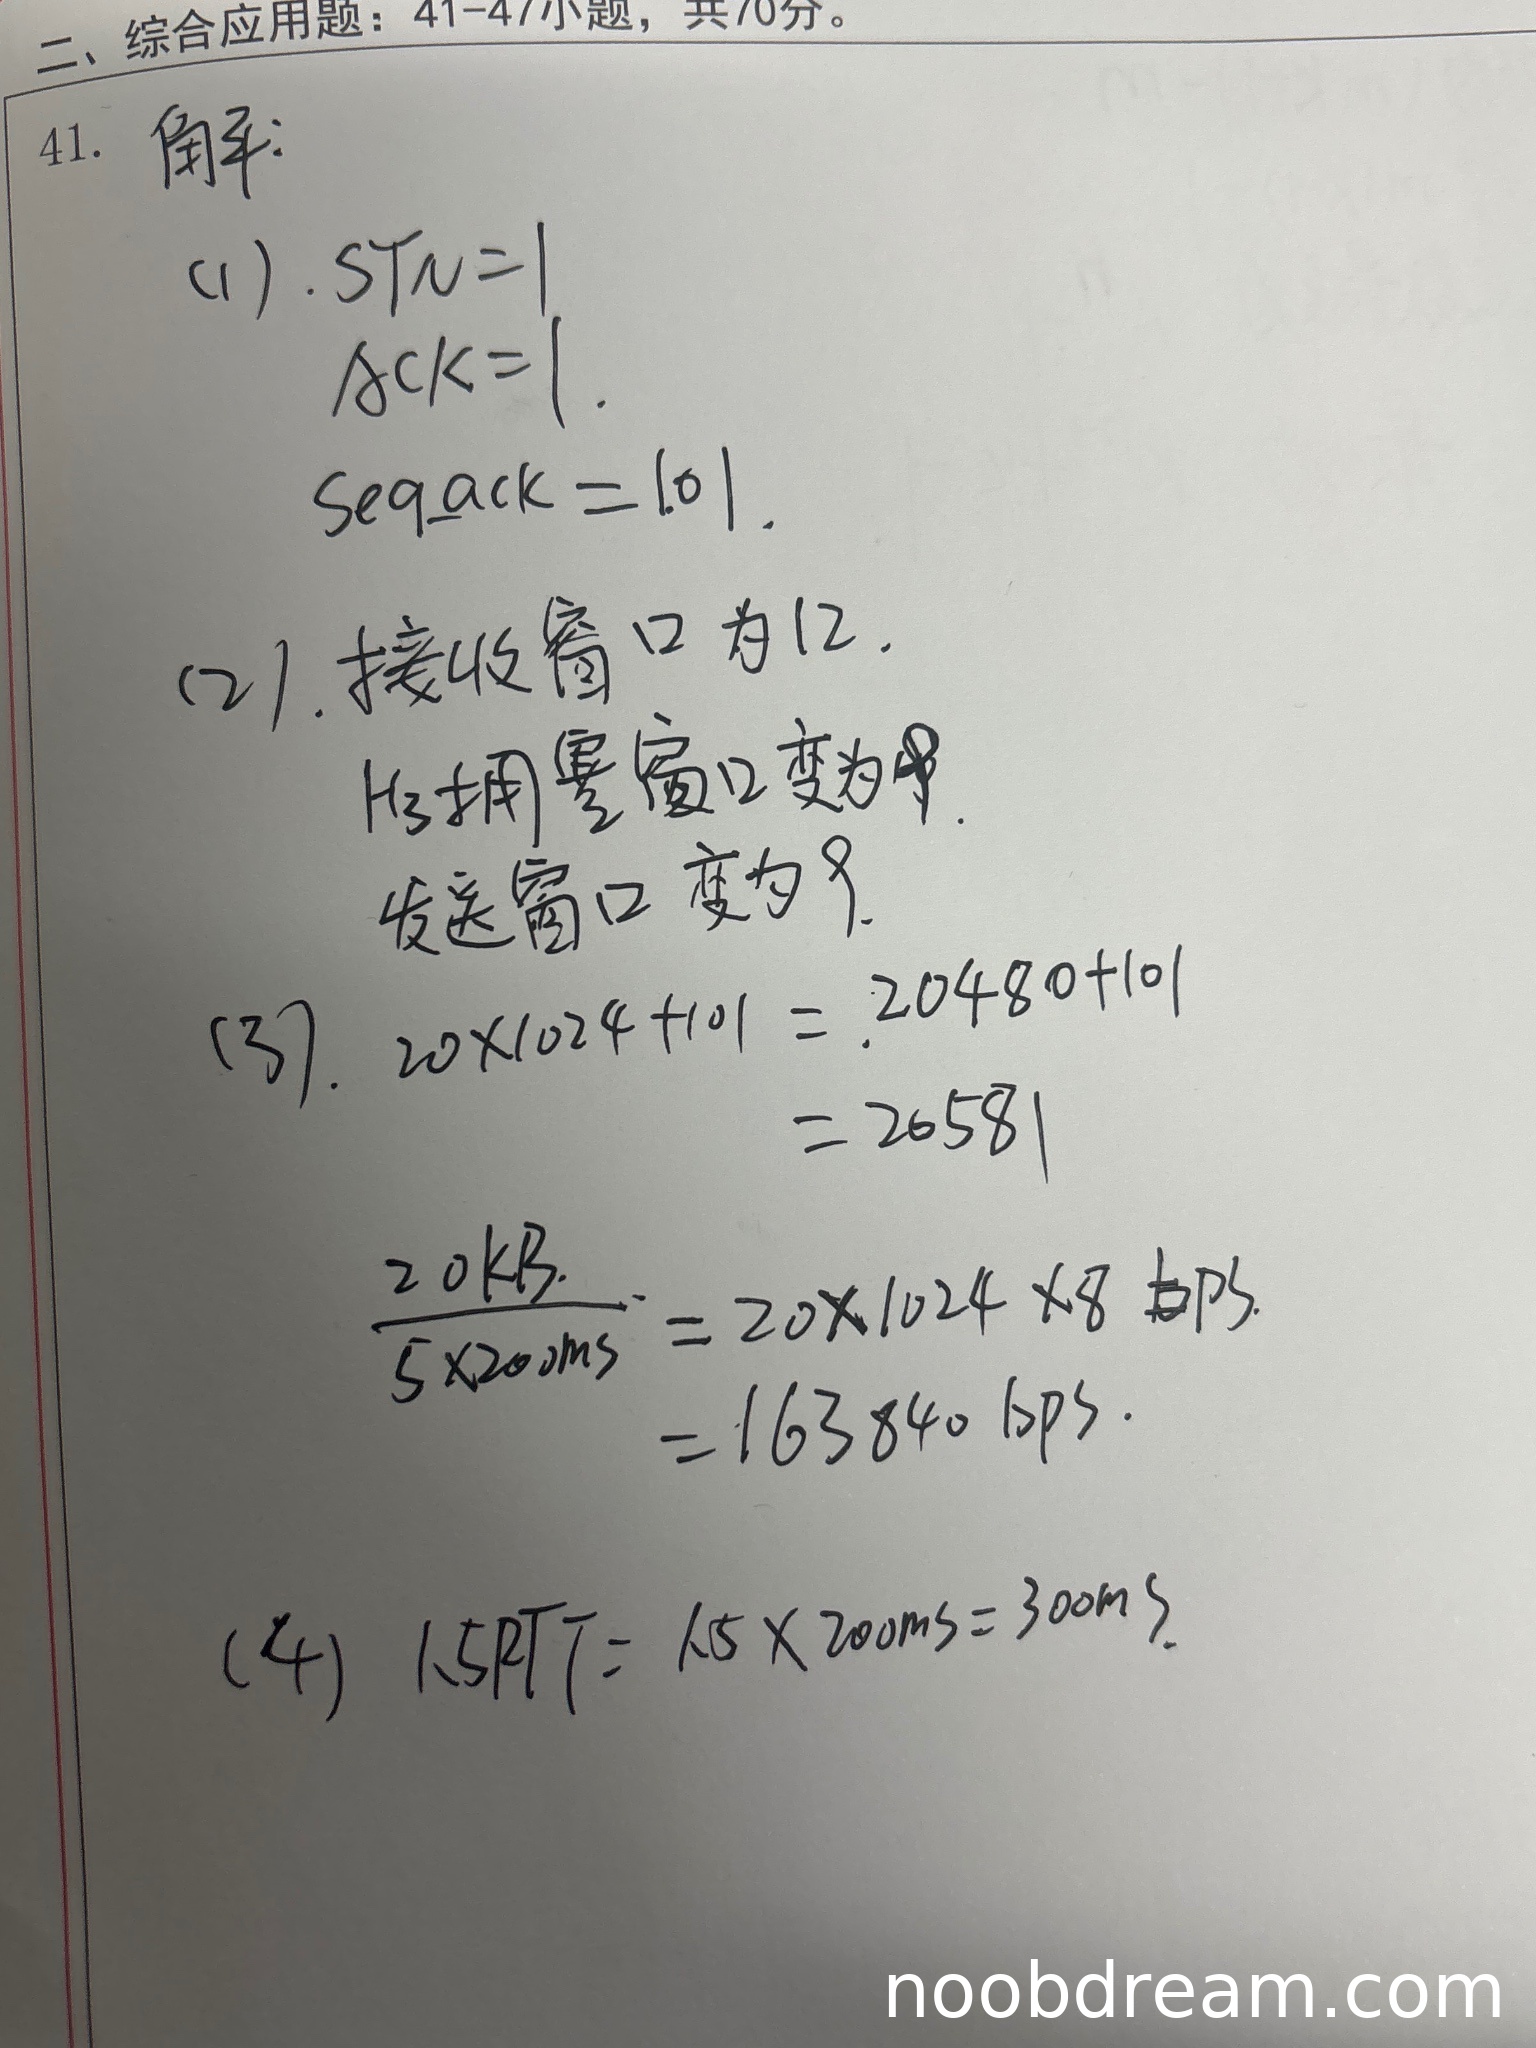 二、综合应用题：41-47小题，共70分。
41. 解:
(1). STN=1
ACK=1.
seq_ack=101.
(2). 接收窗口为12.
H3拥塞窗口变为9.
发送窗口变为9.
(3). 20×1024+101 = 20480+101
= 20581
20KB.
5×200ms
= 20×1024×8 bps.
= 163840 bps.
(4) 1.5RTT= 1.5×200ms=300ms.
noobdream.com